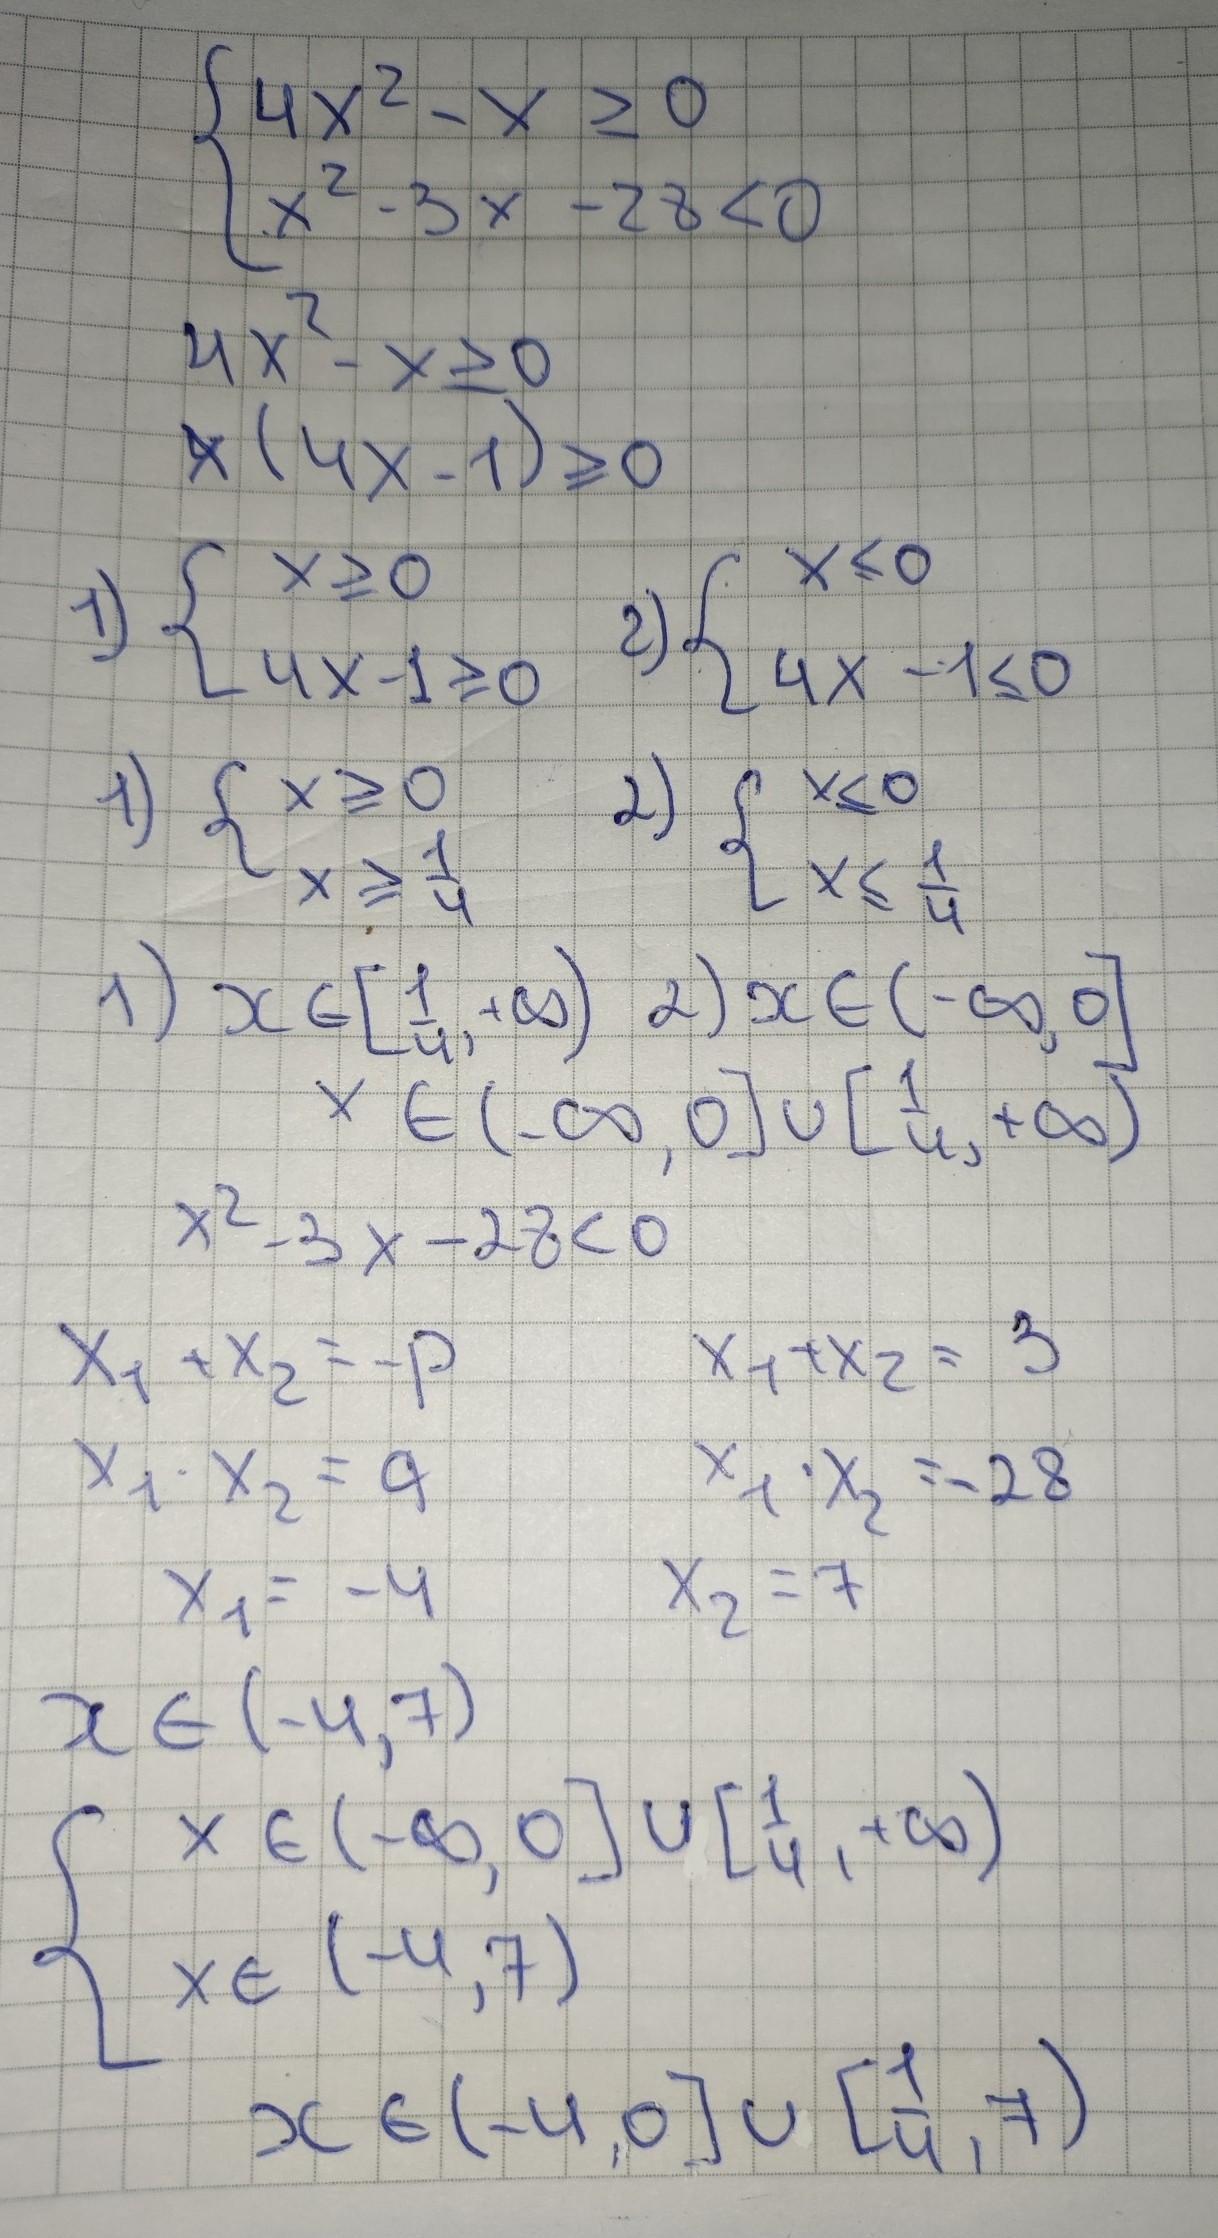 {4x² - x ≥ 0
x² - 3x - 28 < 0
4x² - x ≥ 0
x(4x - 1) ≥ 0
1) {x ≥ 0 2) {x ≤ 0
4x - 1 ≥ 0 4x - 1 ≤ 0
1) {x ≥ 0 2) {x ≤ 0
x ≥ 1/4 x ≤ 1/4
1) x ∈ [1/4, +∞) 2) x ∈ (-∞, 0]
x ∈ (-∞, 0] ∪ [1/4, +∞)
x² - 3x - 28 < 0
x₁ + x₂ = -p x₁ + x₂ = 3
x₁ · x₂ = q x₁ · x₂ = -28
x₁ = -4 x₂ = 7
x ∈ (-4, 7)
{x ∈ (-∞, 0] ∪ [1/4, +∞)
x ∈ (-4, 7)
x ∈ (-4, 0] ∪ [1/4, 7)